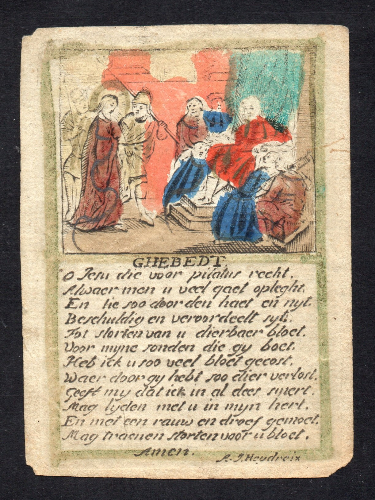 GHEBEDT.
O Jesu die voor pilatus recht,
Alwaer men u veel quet opleght.
En lie soo door den haet en nyt.
Beschuldig en veroordeelt syt.
Tot storten van u dierbaer bloet.
Voor myne sonden die gy boet.
Heb ick u soo veel bloet gecost.
Waer door gy hebt soo dier verlost.
Geeft my dat ick in al dees smert.
Mag lyden met u in myn hert.
En met een rauw en droef gemoet.
Mag traenen storten voor u bloet.
Amen.